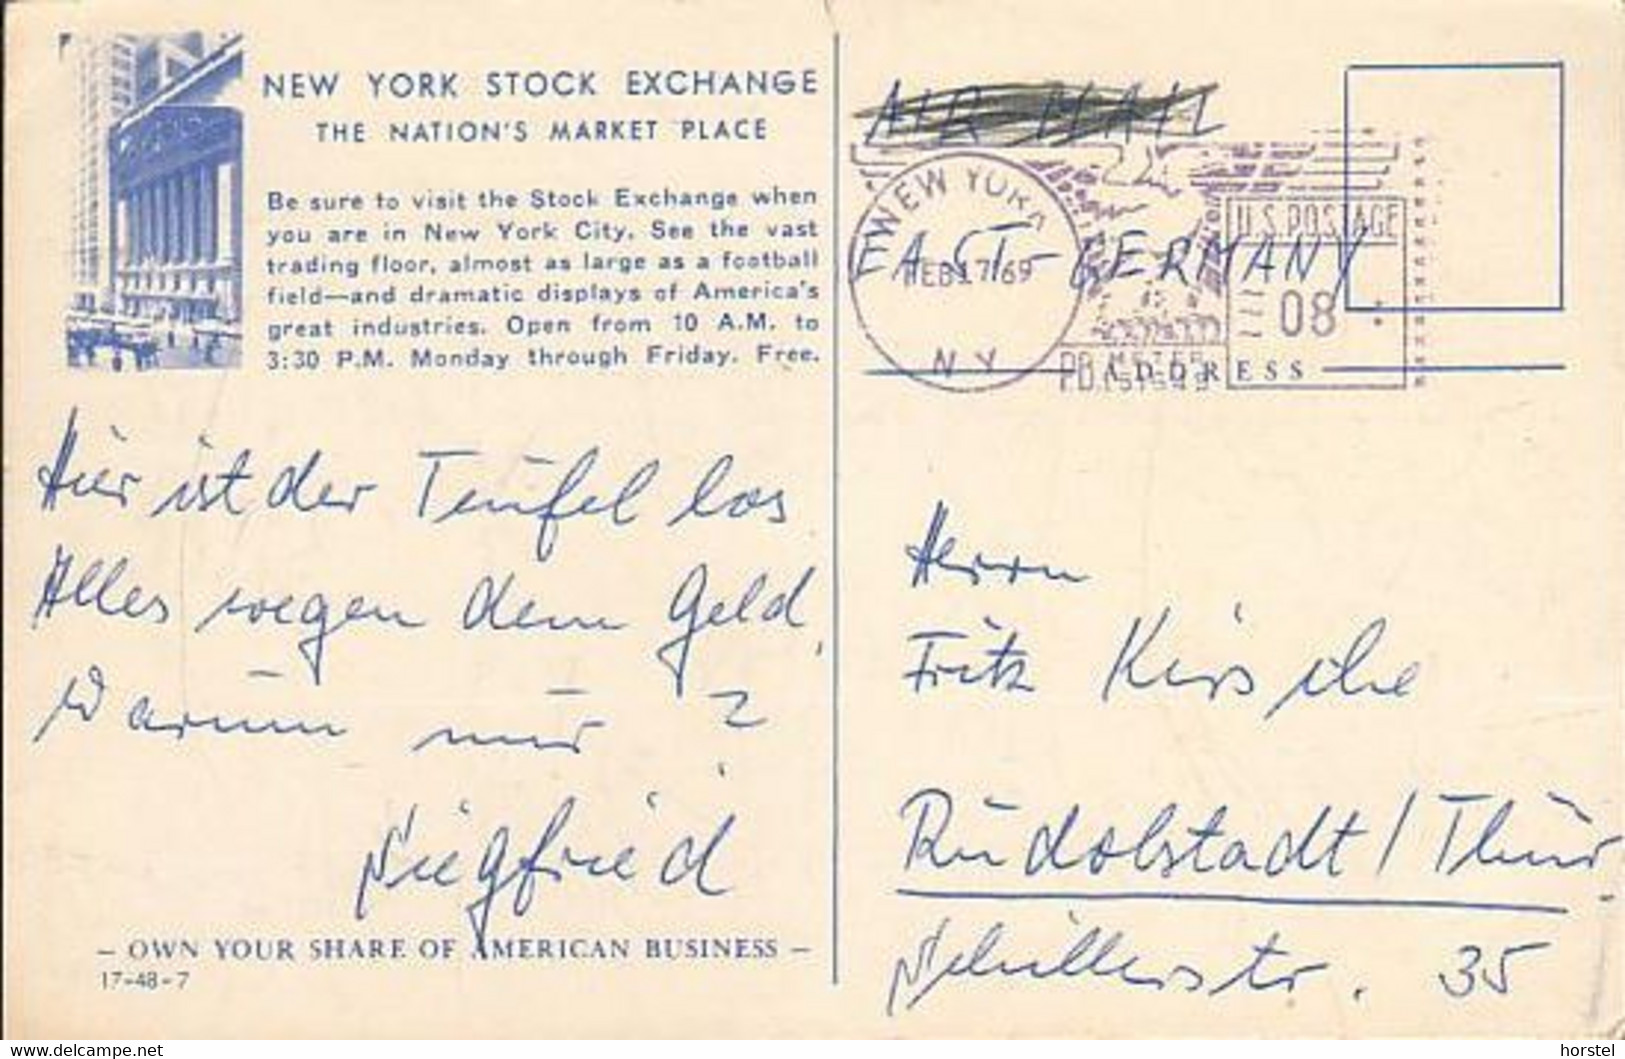 NEW YORK STOCK EXCHANGE
THE NATION'S MARKET PLACE
Be sure to visit the Stock Exchange when
you are in New York City. See the vast
trading floor, almost as large as a football
field—and dramatic displays of America's
great industries. Open from 10 A.M. to
3:30 P.M. Monday through Friday. Free.
Hier ist der Teufel los
Alles wegen dem Geld,
Warum nur?
Siegfried
— OWN YOUR SHARE OF AMERICAN BUSINESS —
17-48-7
AIR MAIL
NEW YORK
FEB 17 '69
N Y
U.S. POSTAGE
08
PB METER
EAST-GERMANY
ADDRESS
Herrn
Fritz Kirsche
Rudolstadt / Thür.
Schillerstr. 35
www.delcampe.net
horstel